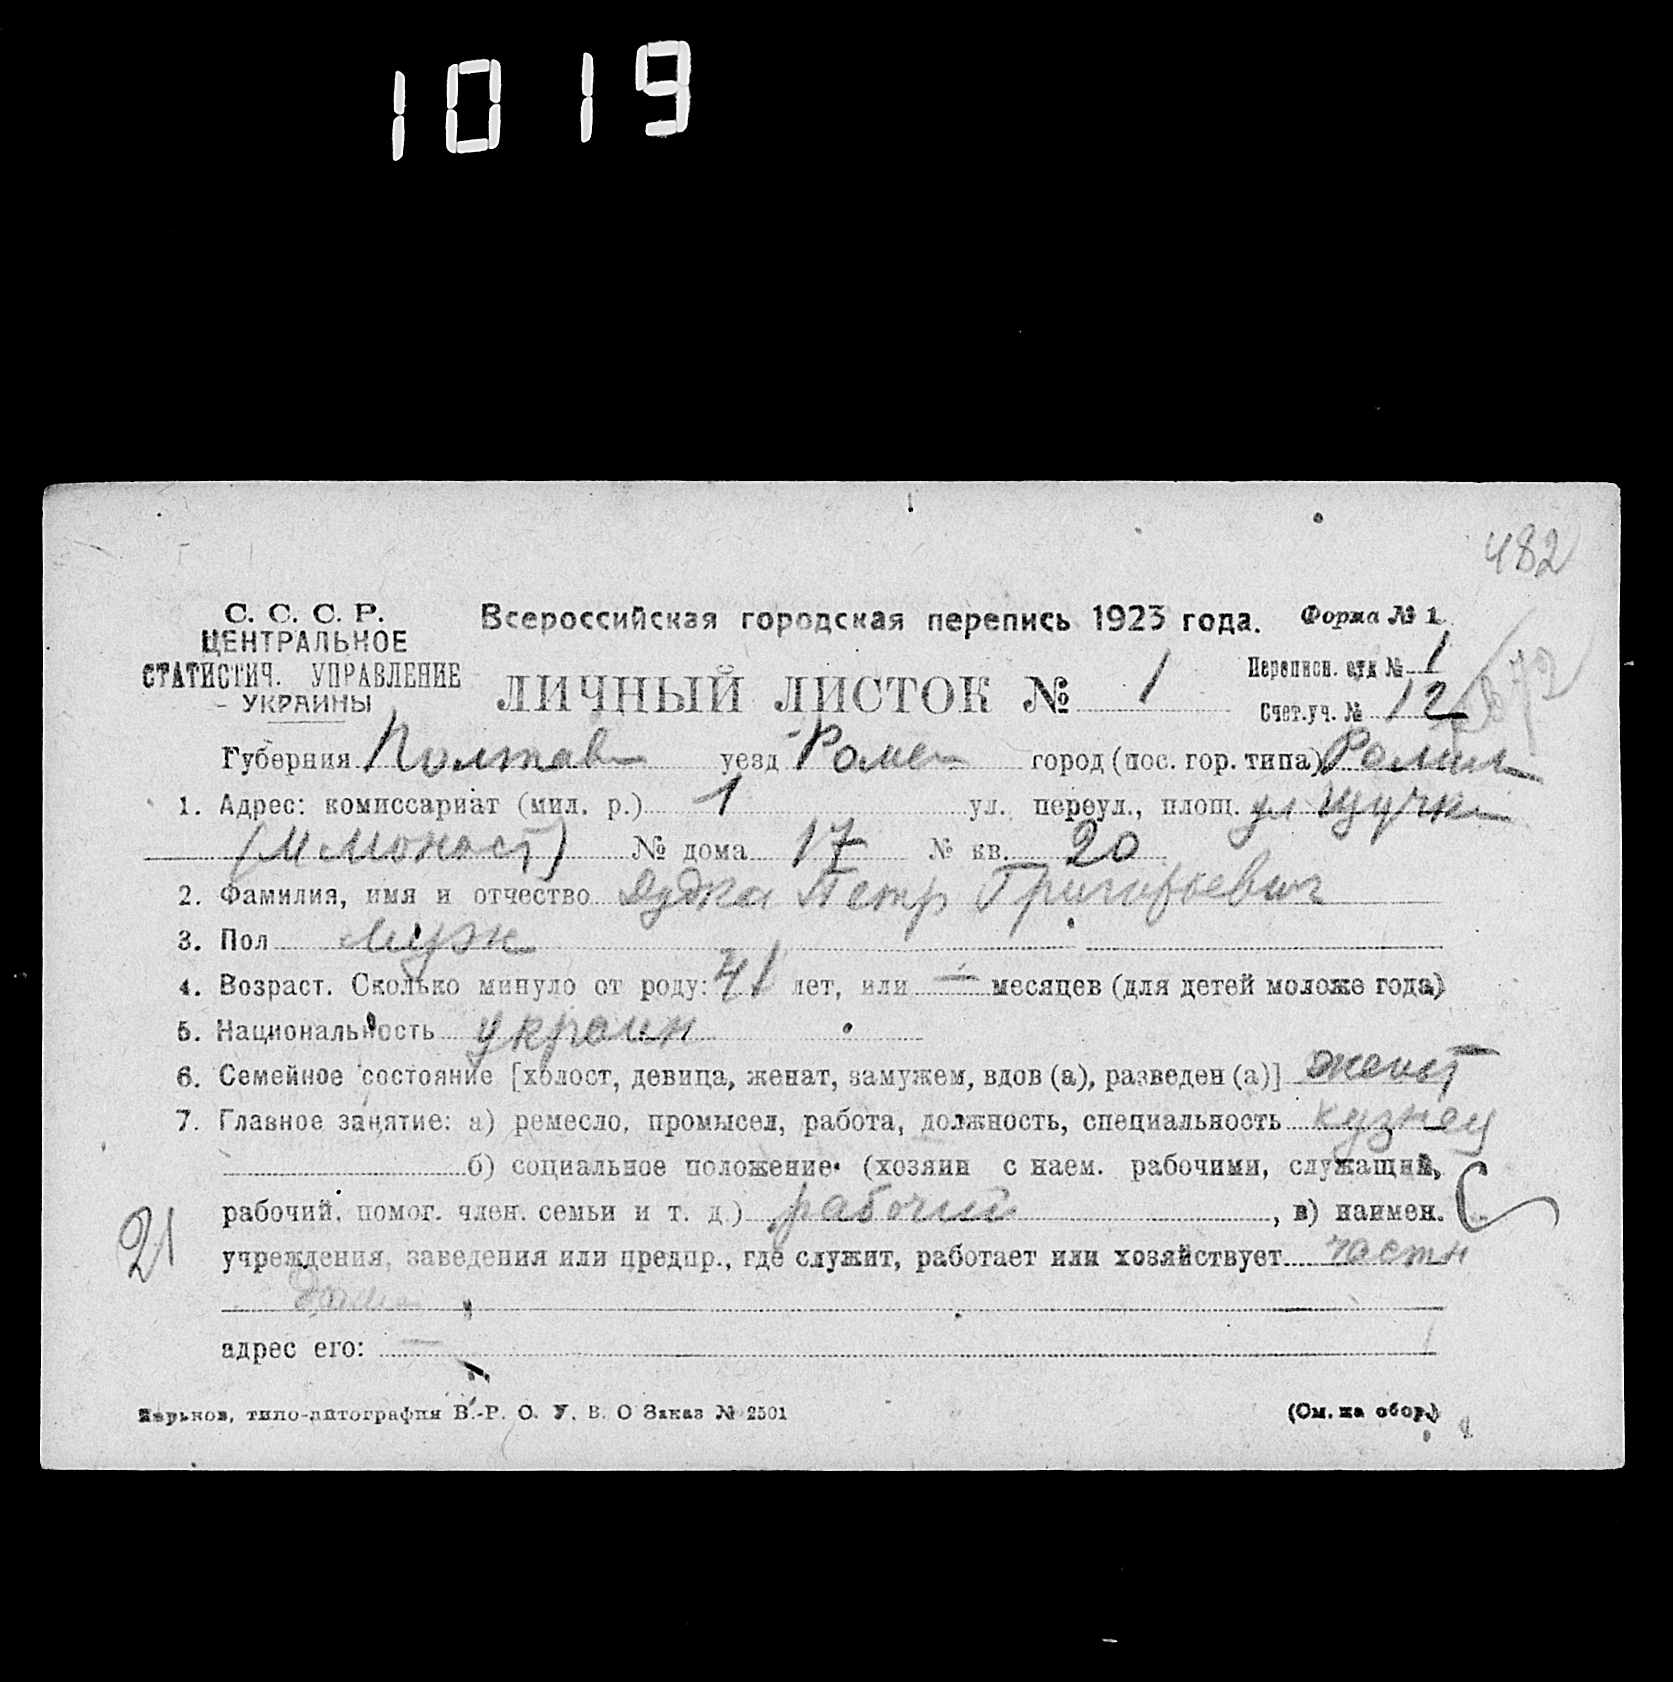 1019
482
С. С. С. Р.
ЦЕНТРАЛЬНОЕ
СТАТИСТИЧ. УПРАВЛЕНИЕ
УКРАИНЫ
Всероссийская городская перепись 1923 года.
Форма № 1.
ЛИЧНЫЙ ЛИСТОК № 1
Переписн. отд № 1
Счет.уч. № 12
Губерния Полтав уезд Ромен город (пос. гор. типа) Ромны
1. Адрес: комиссариат (мил. р.) 1 ул., переул., площ. ул Щучки
(М Монаст) № дома 17 № кв. 20
2. Фамилия, имя и отчество Дудка Петр Григорьевич
3. Пол муж
4. Возраст. Сколько минуло от роду: 41 лет, или — месяцев (для детей моложе года)
5. Национальность украин
6. Семейное состояние [холост, девица, женат, замужем, вдов (а), разведен (а)] женат
7. Главное занятие: а) ремесло, промысел, работа, должность, специальность кузнец
б) социальное положение (хозяин с наем. рабочими, служащий,
рабочий, помог. член. семьи и т. д.) рабочий, в) наимен.
21
учреждения, заведения или предпр., где служит, работает или хозяйствует частн
адрес его: —
Харьков, типо-литография В.-Р. О. У. В. О Заказ № 2501
(См. на обор.)